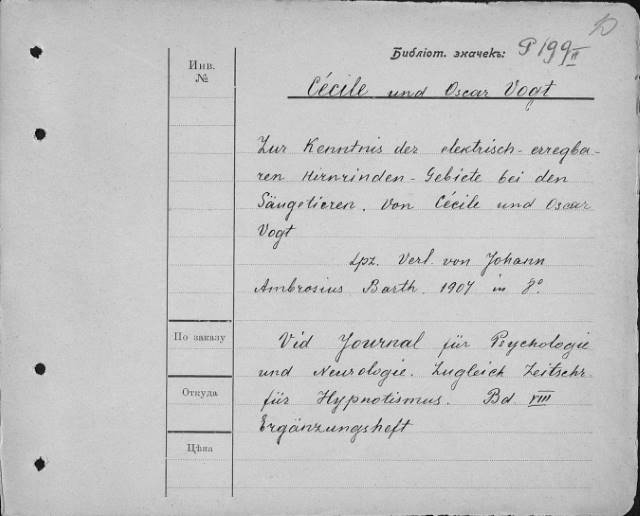 Библіот. значекъ: P 199 II
Инв.
№
Cécile und Oscar Vogt
Zur Kenntnis der elektrisch-erregba-
ren Hirnrinden-Gebiete bei den
Säugetieren. Von Cécile und Oscar
Vogt
Lpz. Verl. von Johann
Ambrosius Barth. 1907 in 8°.
По заказу
Vid Journal für Psychologie
und Neurologie. Zugleich Zeitschr.
Откуда
für Hypnotismus. Bd VIII
Ergänzungsheft
Цѣна